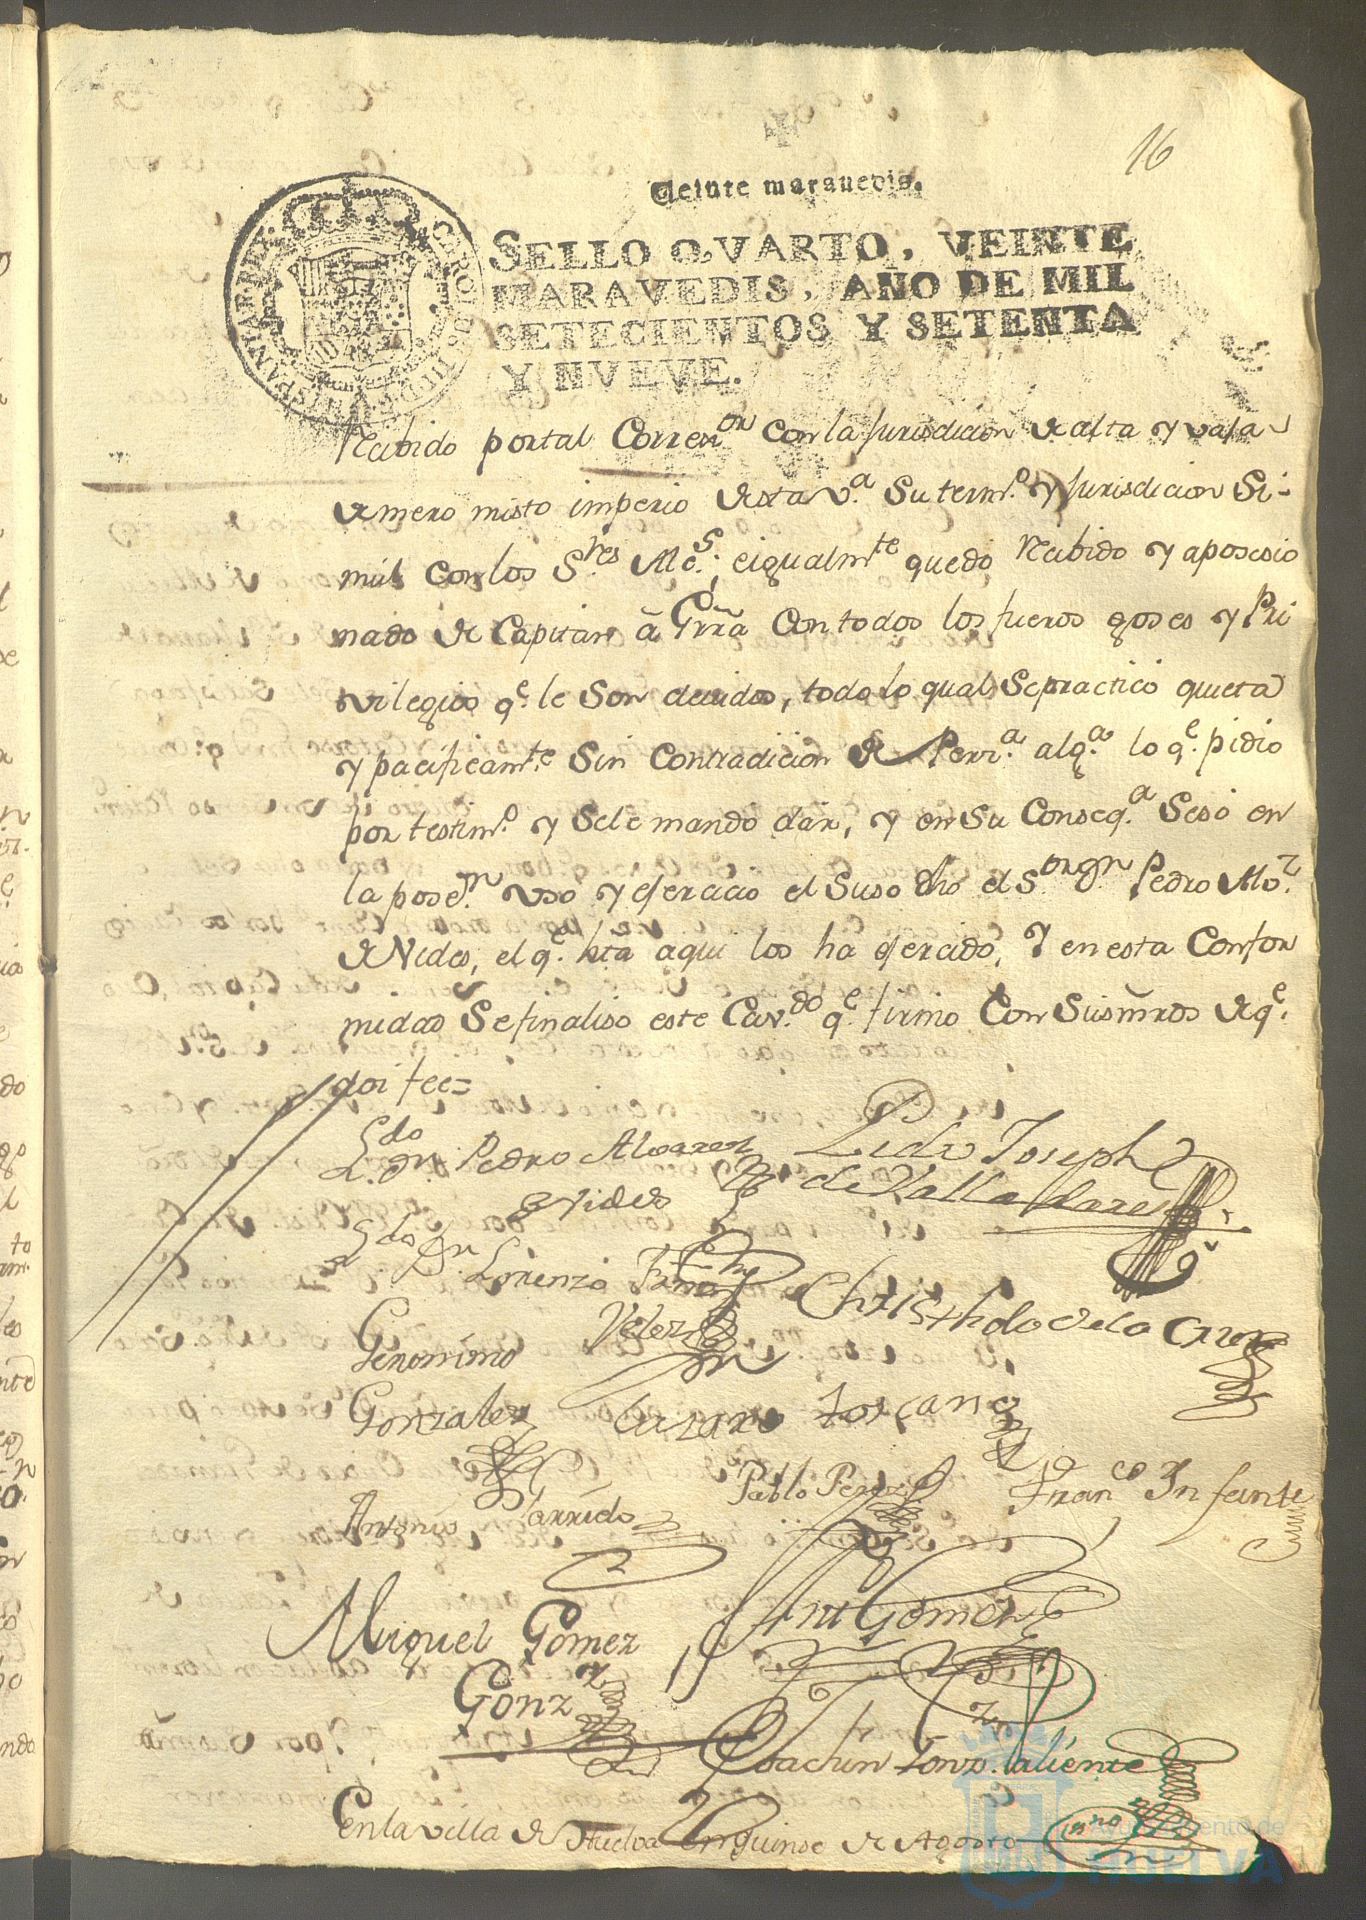 16
Veinte maravedis.
SELLO QVARTO, VEINTE
MARAVEDIS, AÑO DE MIL
SETECIENTOS Y SETENTA
Y NVEVE.
CAROLUS III D G HISPANIAR REX
Recibido por tal Corren.or con la Jurisdicion de alta y vaja
de mero misto imperio de esta v.a Su term.o y Jurisdicion Si-
mul con los S.res Alc.s; e igualm.te quedo, recibido y aposesio
nado de Capitan â Grrã Con todos los fueros goses y Pri
vilegios q.e le Son devidos, todo lo qual Se practicó quieta
y pacificam.te Sin Contradicion de Perz.a alg.a lo q.e pidio
por testim.o y Se le mandó dar, y en Su Conseq.a Sesó en
la pose.n uso y ejercicio el Suso dho el S.or D.n Pedro Alv.z
de Nides, el q.e hta aqui los ha ejercido, Y en esta Confor
midad Se finaliso este Cav.do q.e firmo Con Sus mrds de q.e
doi fee=
L.do D.n Pedro Alvarez
de Nides
Pedro Joseph
de Valladares
L.do D.n Lorenzo Frnz
Velez
Christhol de la Cruz
Geronimo
Gonzalez
Lazaro Toscano
Antonio Garrido
Pablo Perez
Fran.co Infante
Miguel Gomez
Gonz.z
Ant Gomez
Joachin Gonz. Valiente
En la villa de Huelva en quinse de Agosto
Ayuntamiento de
HUELVA